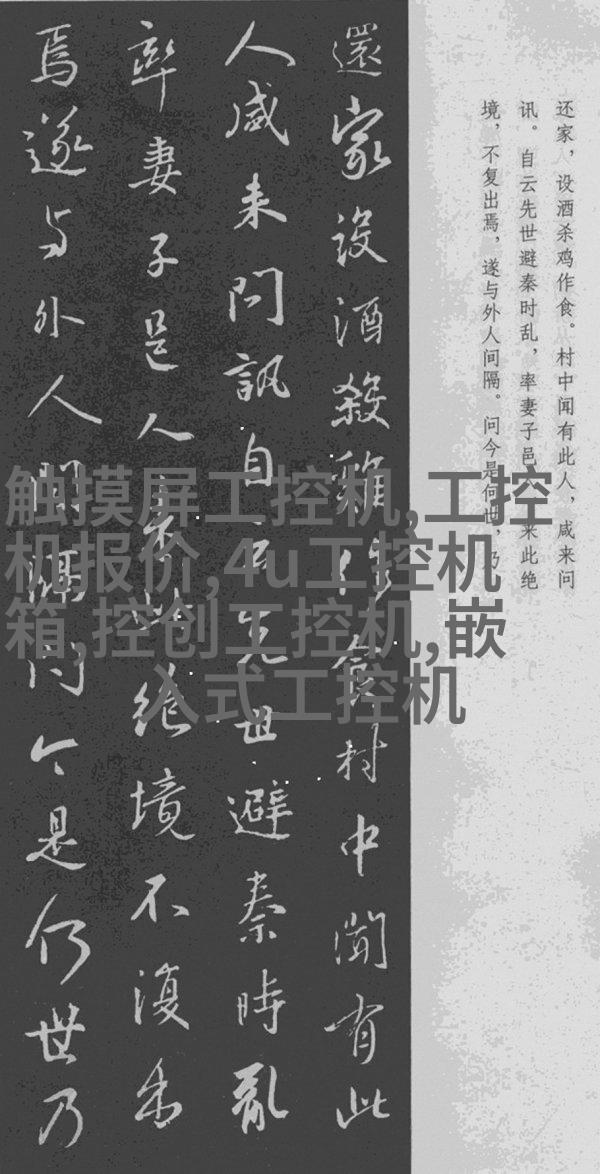 还家，设酒杀鸡作食。村中闻有此人，咸来问
讯。自云先世避秦时乱，率妻子邑来此绝
境，不复出焉，遂与外人间隔。问今是何世，乃
還家設酒殺雞作食村中聞有此
人咸来問訊自云先世避秦時亂
率妻子邑人来此絶境不復出
焉遂与外人間隔問今是何世乃
触摸屏工控机,工控
机报价,4u工控机
箱,控创工控机,嵌
入式工控机